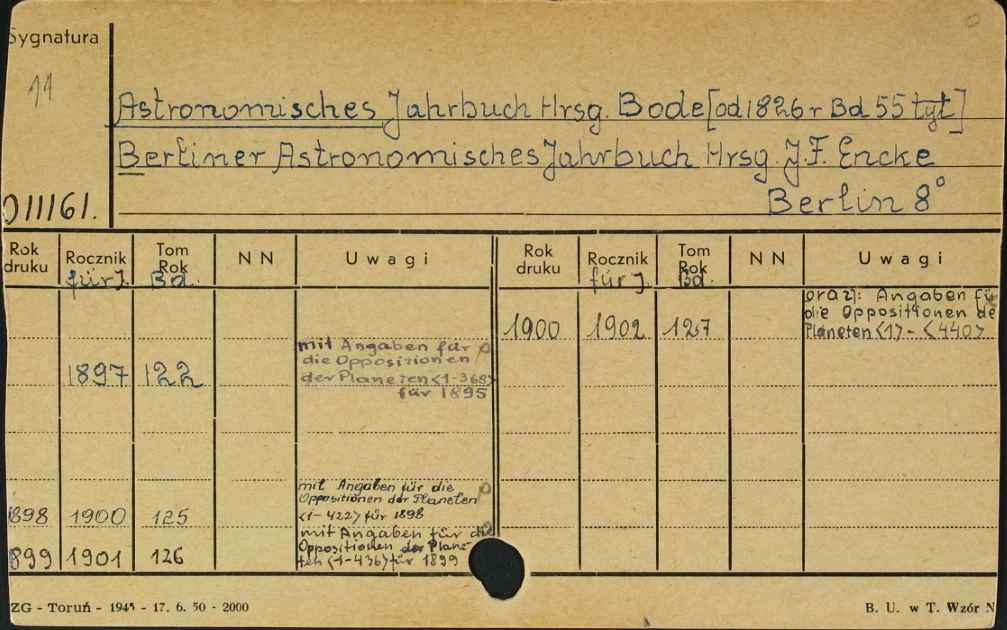 Sygnatura
11
Astronomisches Jahrbuch Hrsg. Bode [od 1826 r Bd 55 tyt]
Berliner Astronomisches Jahrbuch Hrsg. J.F. Encke
Berlin 8°
O III 61.
Rok druku Rocznik für J. Tom Rok Bd. NN Uwagi Rok druku Rocznik für J. Tom Rok Bd. NN Uwagi
1900 1902 127 oraz: Angaben für
die Oppositionen de
Planeten <1> - <440>
1897 122 mit Angaben für
die Oppositionen
der Planeten <1-368>
für 1895
898 1900 125 mit Angaben für die
Oppositionen der Planeten
<1-422> für 1898
899 1901 126 mit Angaben für die
Oppositionen der Plane-
ten <1-436> für 1899
ZG - Toruń - 1945 - 17. 6. 50 - 2000
B. U. w T. Wzór N